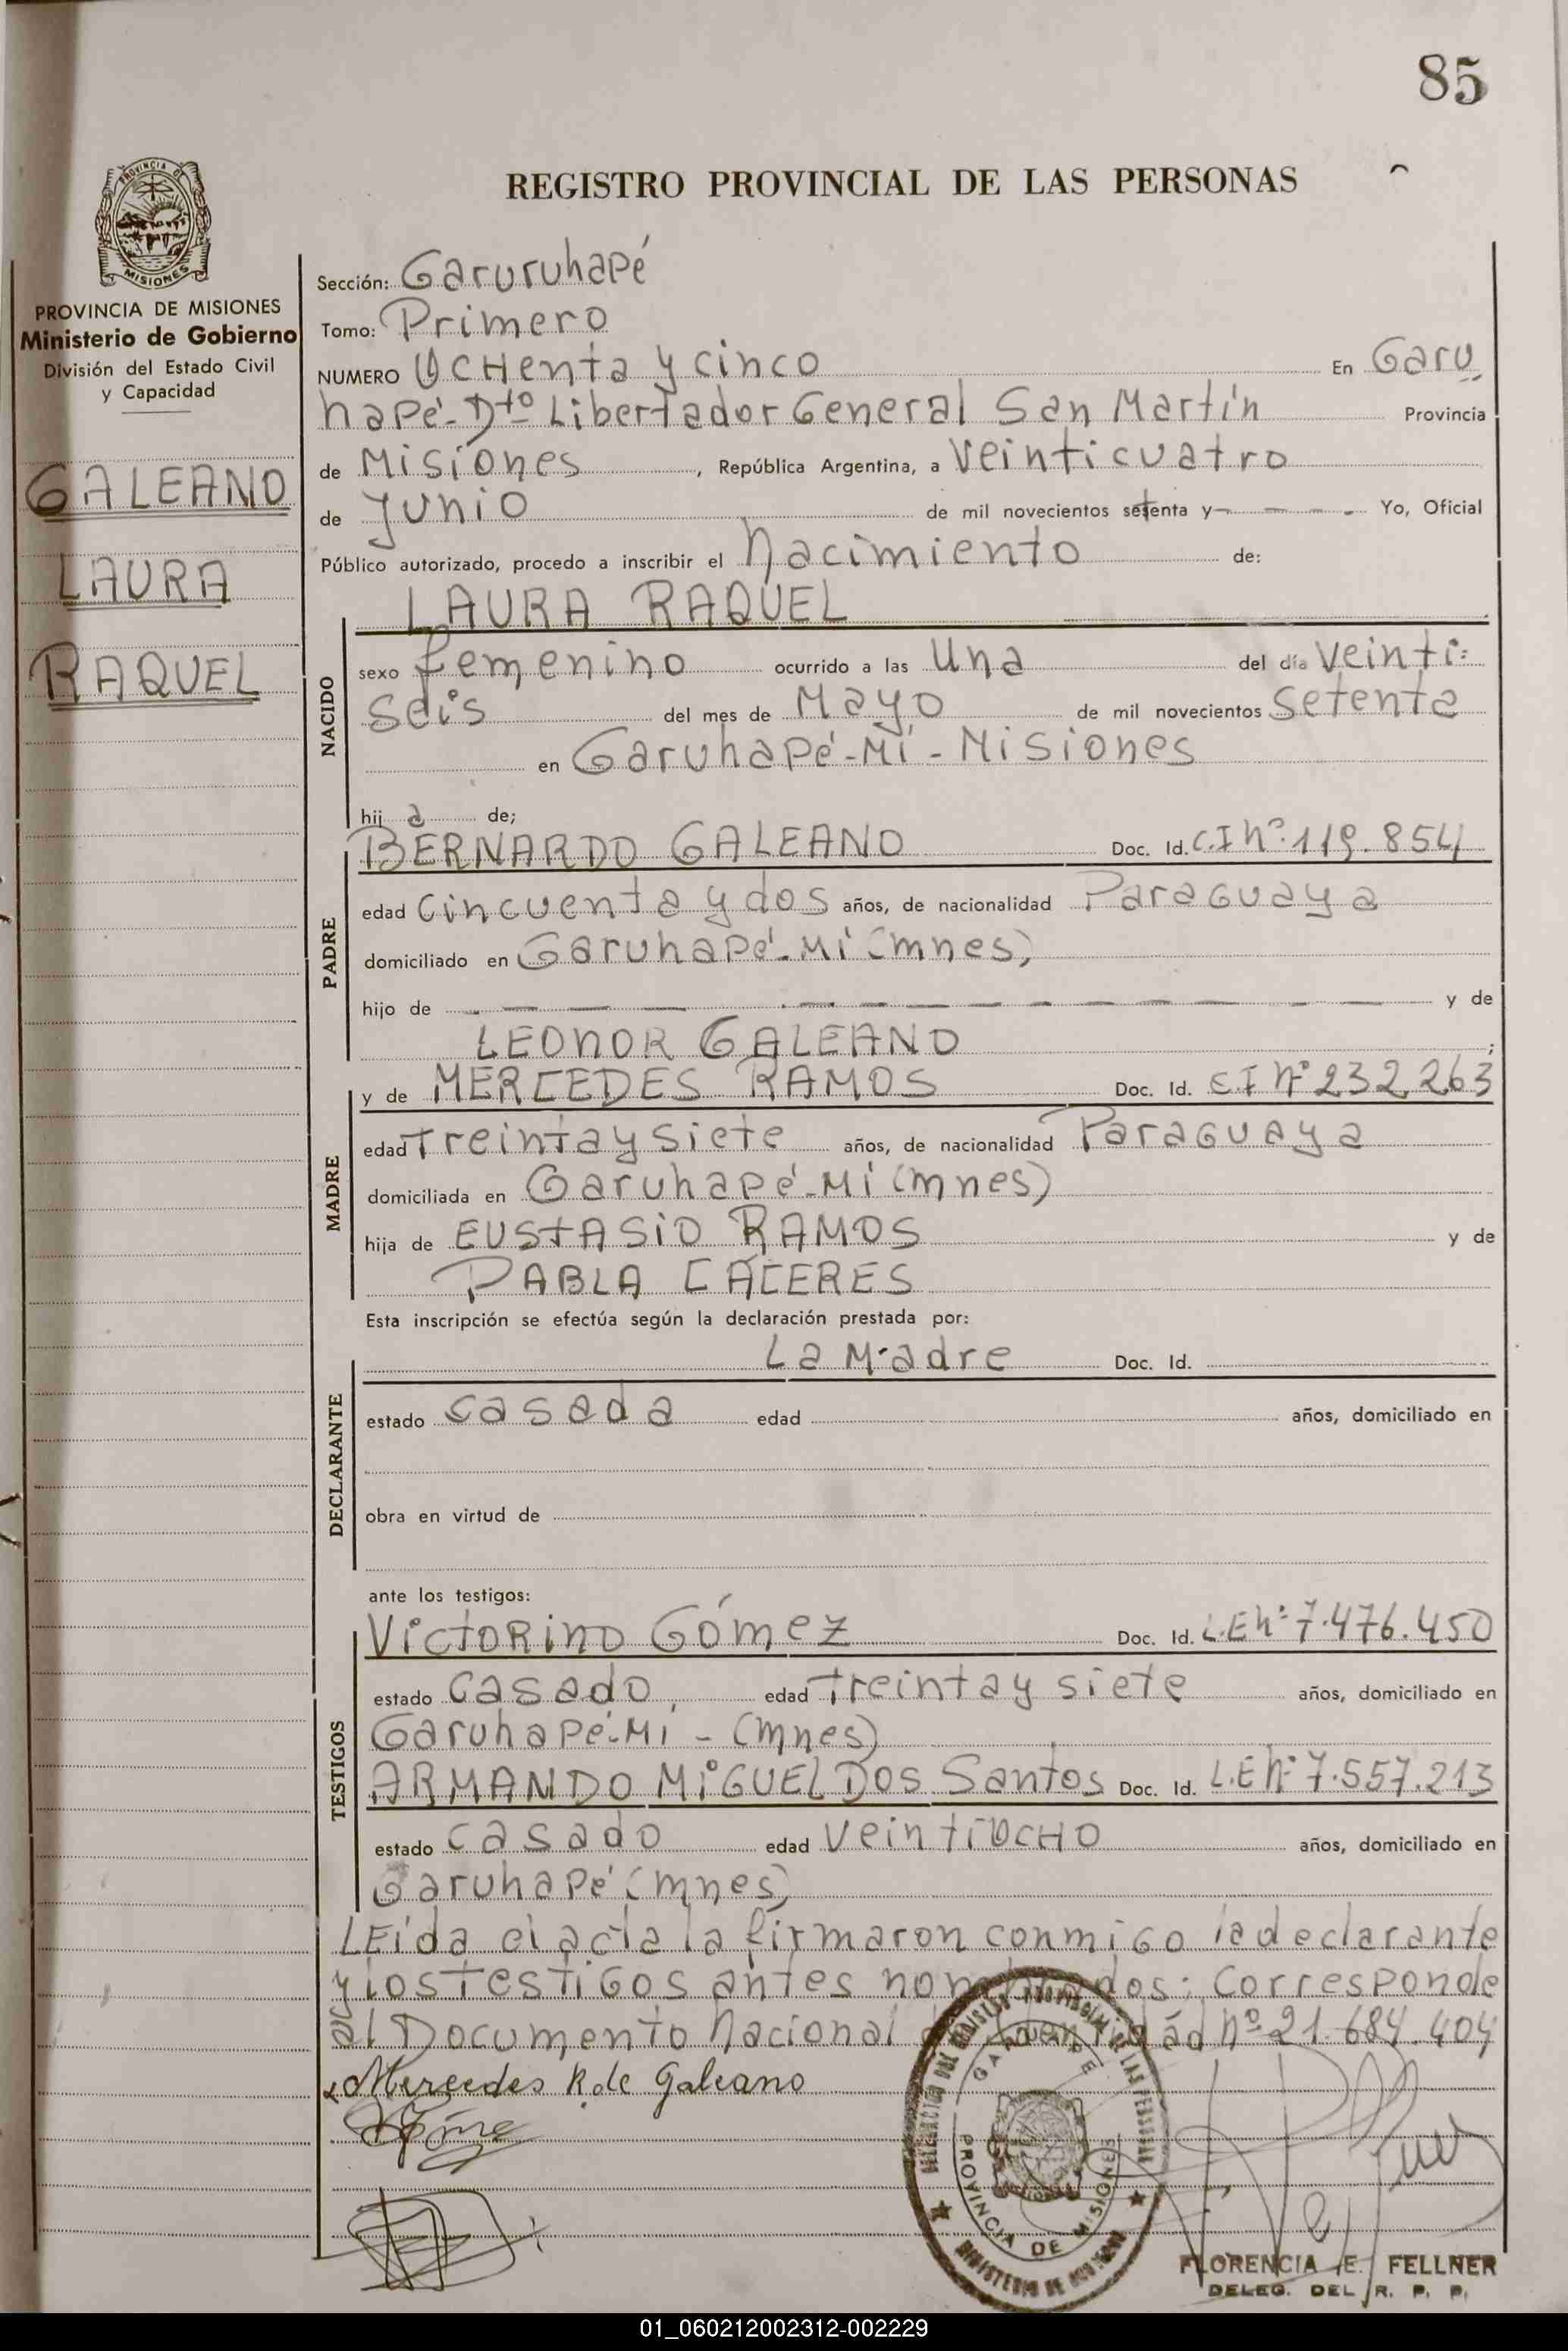 85
REGISTRO PROVINCIAL DE LAS PERSONAS
PROVINCIA DE
MISIONES
PROVINCIA DE MISIONES
Ministerio de Gobierno
División del Estado Civil
y Capacidad
GALEANO
LAURA
RAQUEL
Sección: Garuruhapé
Tomo: Primero
NUMERO Ochenta y cinco En Garu
hapé-Dto Libertador General San Martín Provincia
de Misiones, República Argentina, a veinticuatro
de Junio de mil novecientos setenta y - - - - Yo, Oficial
Público autorizado, procedo a inscribir el nacimiento de:
LAURA RAQUEL
NACIDO
sexo femenino ocurrido a las Una del día veinti=
seis del mes de Mayo de mil novecientos setenta
en Garuhapé-Mí-Misiones
hij a de;
PADRE
BERNARDO GALEANO Doc. Id. C.I nº.119.854
edad cincuenta y dos años, de nacionalidad Paraguaya
domiciliado en Garuhapé-Mí (mnes)
hijo de - - - - - - - - y de
LEONOR GALEANO;
MADRE
y de MERCEDES RAMOS Doc. Id. C.I nº 232.263
edad Treinta y siete años, de nacionalidad Paraguaya
domiciliada en Garuhapé-Mí (mnes)
hija de EUSTASIO RAMOS y de
PABLA CÁCERES
Esta inscripción se efectúa según la declaración prestada por:
DECLARANTE
La Madre Doc. Id.
estado casada edad años, domiciliado en
obra en virtud de
ante los testigos:
TESTIGOS
VICTORINO GÓMEZ Doc. Id. L.E nº 7.476.450
estado casado, edad Treinta y siete años, domiciliado en
Garuhapé-Mí - (mnes)
ARMANDO MIGUEL DOS Santos Doc. Id. L.E nº 7.557.213
estado casado edad veintiocho años, domiciliado en
Garuhapé (mnes)
LEída el acta la firmaron conmigo la declarante
y los testigos antes nombrados; Corresponde
al Documento Nacional de Identidad nº 21.684.404
Mercedes R. de Galeano
DELEGACION DEL REGISTRO PROVINCIAL DE LAS PERSONAS
GARUHAPE
PROVINCIA DE MISIONES
MINISTERIO DE GOBIERNO
FLORENCIA E. FELLNER
DELEG. DEL R. P. P.
01_060212002312-002229